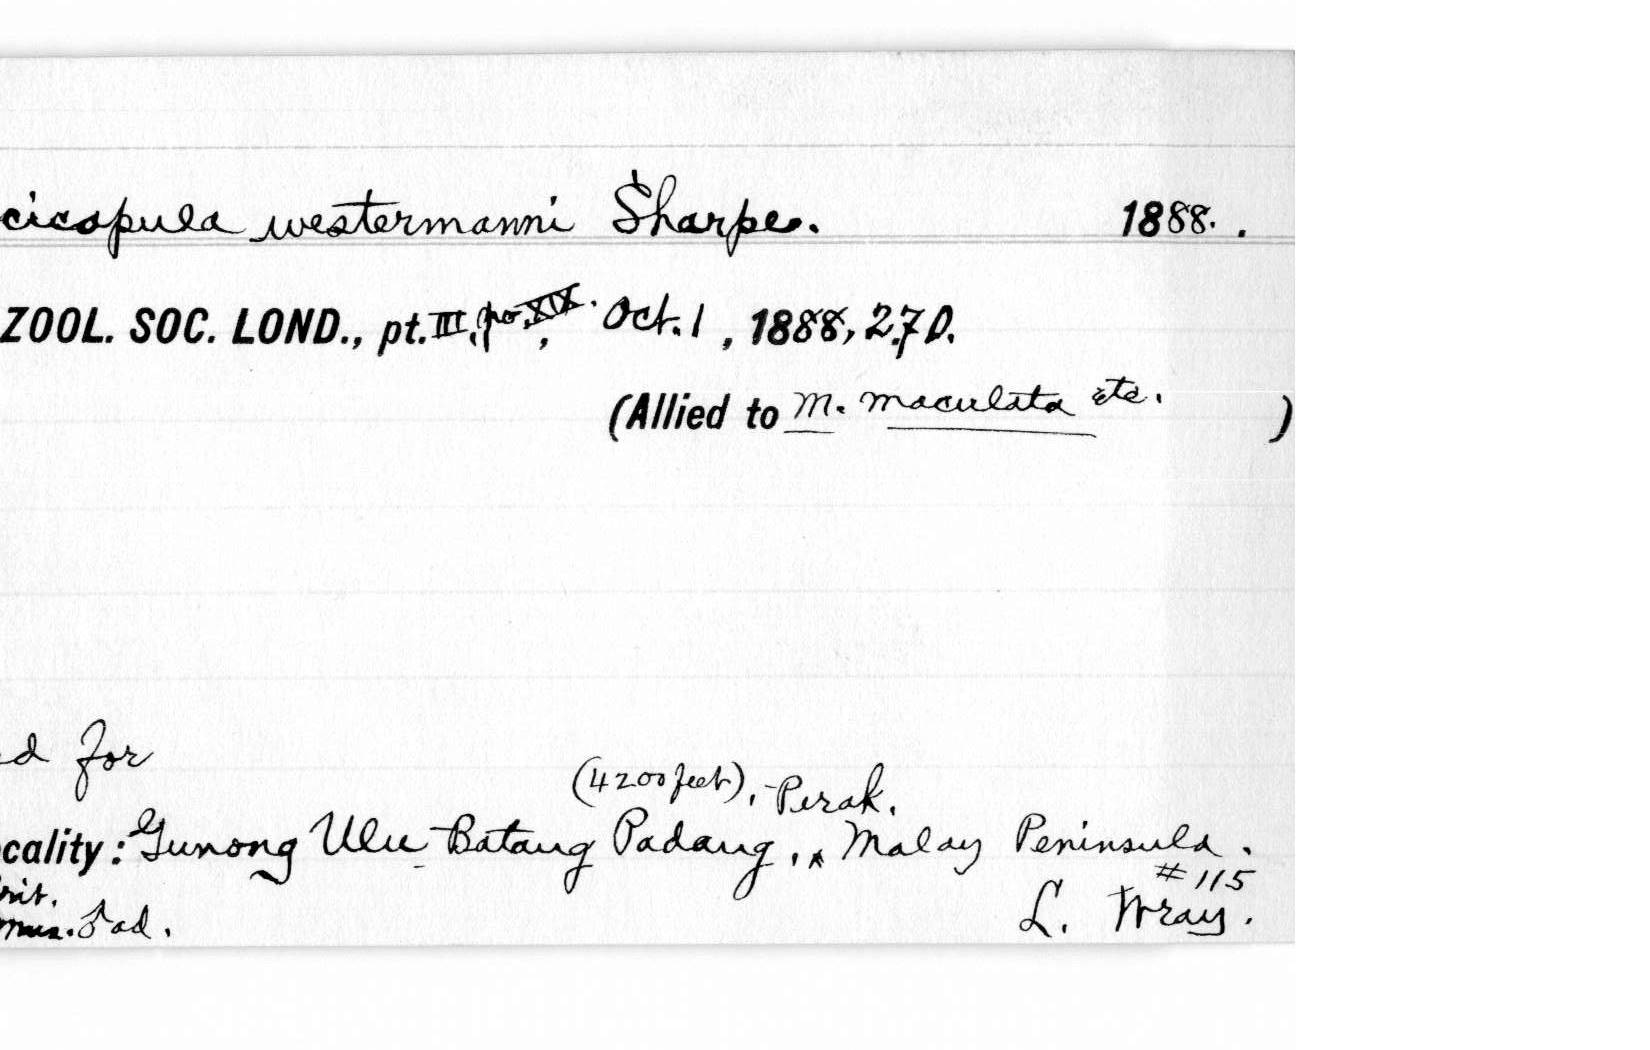 cicapula westermanni Sharpe. 1888. .
ZOOL. SOC. LOND., pt. III, no. XIX. , Oct. 1 , 1888, 270.
(Allied to M. maculata etc. )
ed for
(4200 feet), Perak,
cality: Gunong Ulu Batang Padang, ʌ Malay Peninsula.
rit. #115
Mus. ♂ ad. L. Wray.